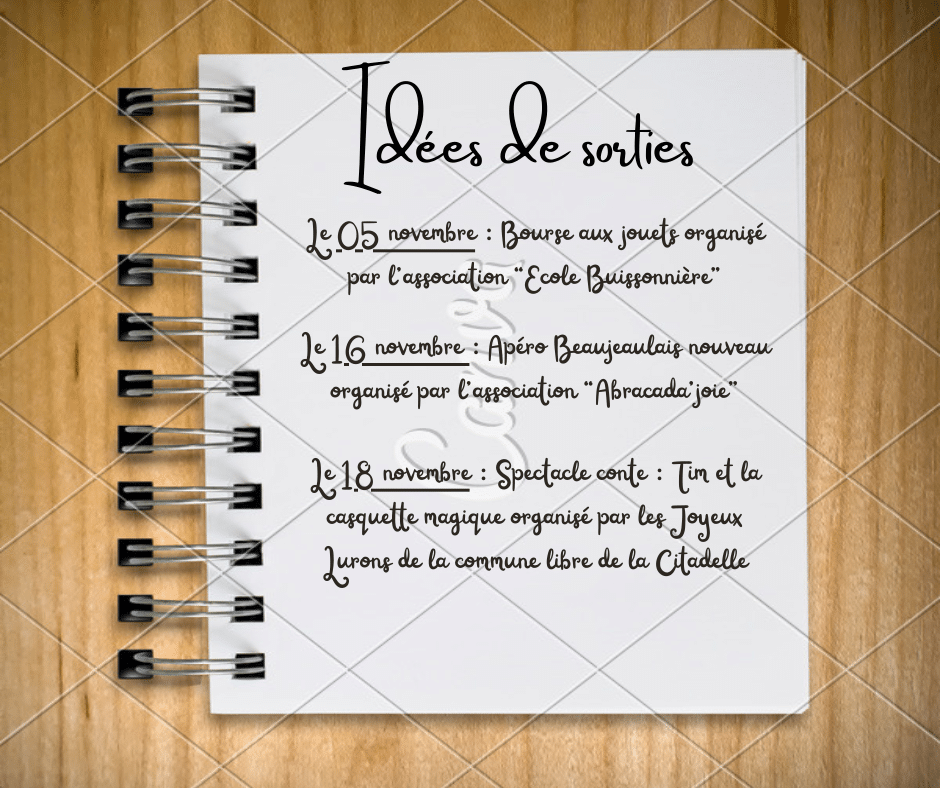 Idées de sorties
Le 05 novembre : Bourse aux jouets organisé
par l'association "Ecole Buissonnière"
Le 16 novembre : Apéro Beaujeaulais nouveau
organisé par l'association "Abracada'joie"
Le 18 novembre : Spectacle conte : Tim et la
casquette magique organisé par les Joyeux
Lurons de la commune libre de la Citadelle
Canva